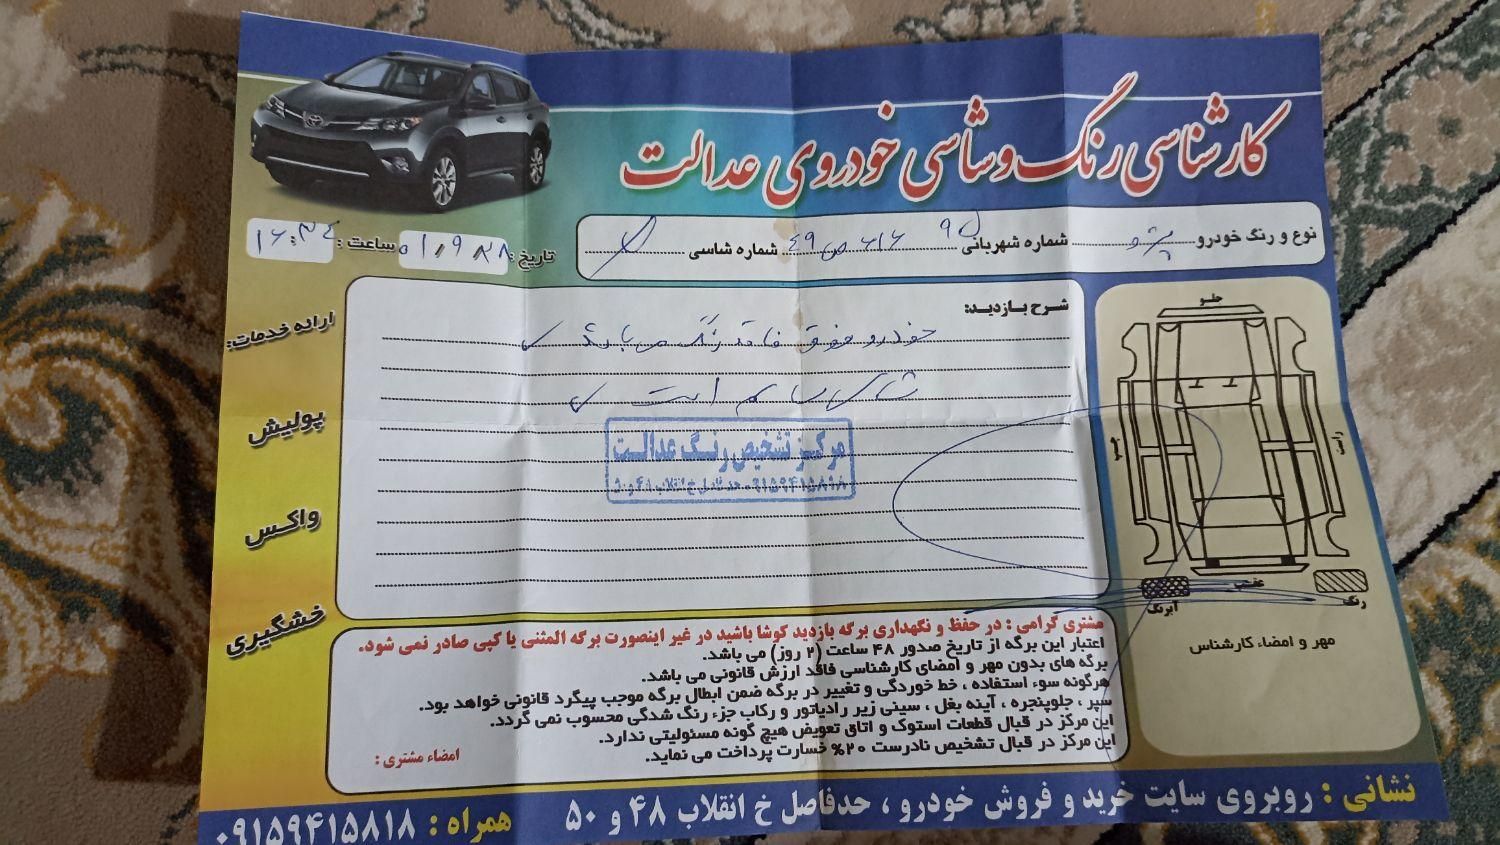 کارشناسی رنگ و شاسی خودروی عدالت
نوع و رنگ خودرو پژو شماره شهربانی ۶۱۶ ص ۴۹ شماره شاسی
تاریخ: ۰۱,۹,۲۸ ساعت: ۱۶:۳۴
شرح بازدید:
خودرو فوق فاقد رنگ می باشد
شاسی سالم است
مرکز تشخیص رنگ عدالت
ارائه خدمات:
پولیش
واکس
خشگیری
جلو
چپ
راست
عقب
آبرنگ
رنگ
مهر و امضاء کارشناس
مشتری گرامی : در حفظ و نگهداری برگه بازدید کوشا باشید در غیر اینصورت برگه المثنی یا کپی صادر نمی شود.
اعتبار این برگه از تاریخ صدور ۴۸ ساعت (۲ روز) می باشد.
برگه های بدون مهر و امضای کارشناسی فاقد ارزش قانونی می باشد.
هرگونه سوء استفاده ، خط خوردگی و تغییر در برگه ضمن ابطال برگه موجب پیگرد قانونی خواهد بود.
سپر ، جلوپنجره ، آینه بغل ، سینی زیر رادیاتور و رکاب جزء رنگ شدگی محسوب نمی گردد.
این مرکز در قبال قطعات استوک و اتاق تعویض هیچ گونه مسئولیتی ندارد.
این مرکز در قبال تشخیص نادرست ۲۰% خسارت پرداخت می نماید.
امضاء مشتری :
نشانی : روبروی سایت خرید و فروش خودرو ، حدفاصل خ انقلاب ۴۸ و ۵۰
همراه : ۰۹۱۵۹۴۱۵۸۱۸